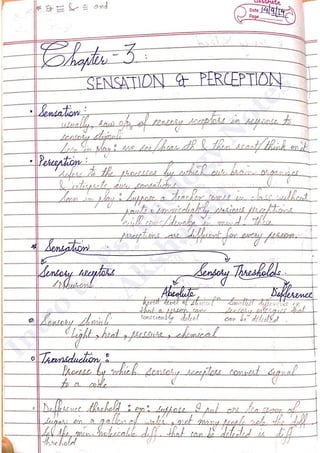 * & ≡ & ≡ and
Date 14/9/19
Page
Chapter - 3 :
SENSATION & PERCEPTION
• Sensation :
usually, raw o/p of sensory receptors in response to
sensory stimuli
we see/hear sth & then react/think on it
• Perception :
refers to the processes by which our brain organizes
& integrate our sensations
Suppose a teacher comes in class without
immediately various perceptions
will in mind. The
perceptions are different for every person.
* Sensation
Sensory receptors Sensory Thresholds
neurons Absolute Difference
lowest level of stimuli smallest difference in
that a person can sensory energies that
consciously detect can be detected
o Sensory stimuli
light, heat, pressure, chemical
o Transduction :
Process by which sensory receptors convert signal
to a code
• Difference threshold : eg: suppose I put one tea spoon of
sugar in a gallon of water, not many people note the diff
So the min. noticeable diff. that can be detected is diff
threshold